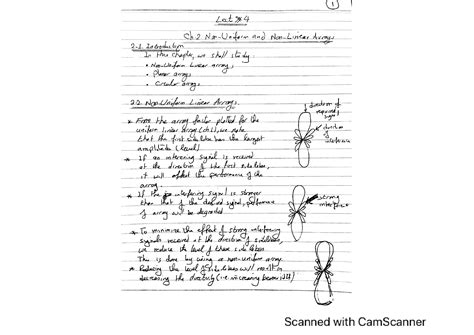 1
Lect # 4
Ch.2 Non-Uniform and Non-Linear Arrays
2-1. Introduction
In this chapter, we shall study:
• Non-Uniform Linear arrays
• Planar arrays
• Circular arrays
2.2. Non-Uniform Linear Arrays.
direction of required signal
* From the array factor plotted for the
uniform linear array (ch1), we note
that the first side lobe has the largest
amplitude (level)
direction of interference
* If an interfering signal is received
at the direction of the first sidelobe,
it will affect the performance of the
array.
* If the interfering signal is stronger
than that of the desired signal, performance
of array will be degraded
strong interference
* To minimize the effect of strong interfering
signals received at the direction of sidelobes,
we reduce the level of these sidelobes
This is done by using a non-uniform array.
* Reducing the level of sidelobes will result in
decreasing the directivity (i.e. increasing beamwidth)
Scanned with CamScanner